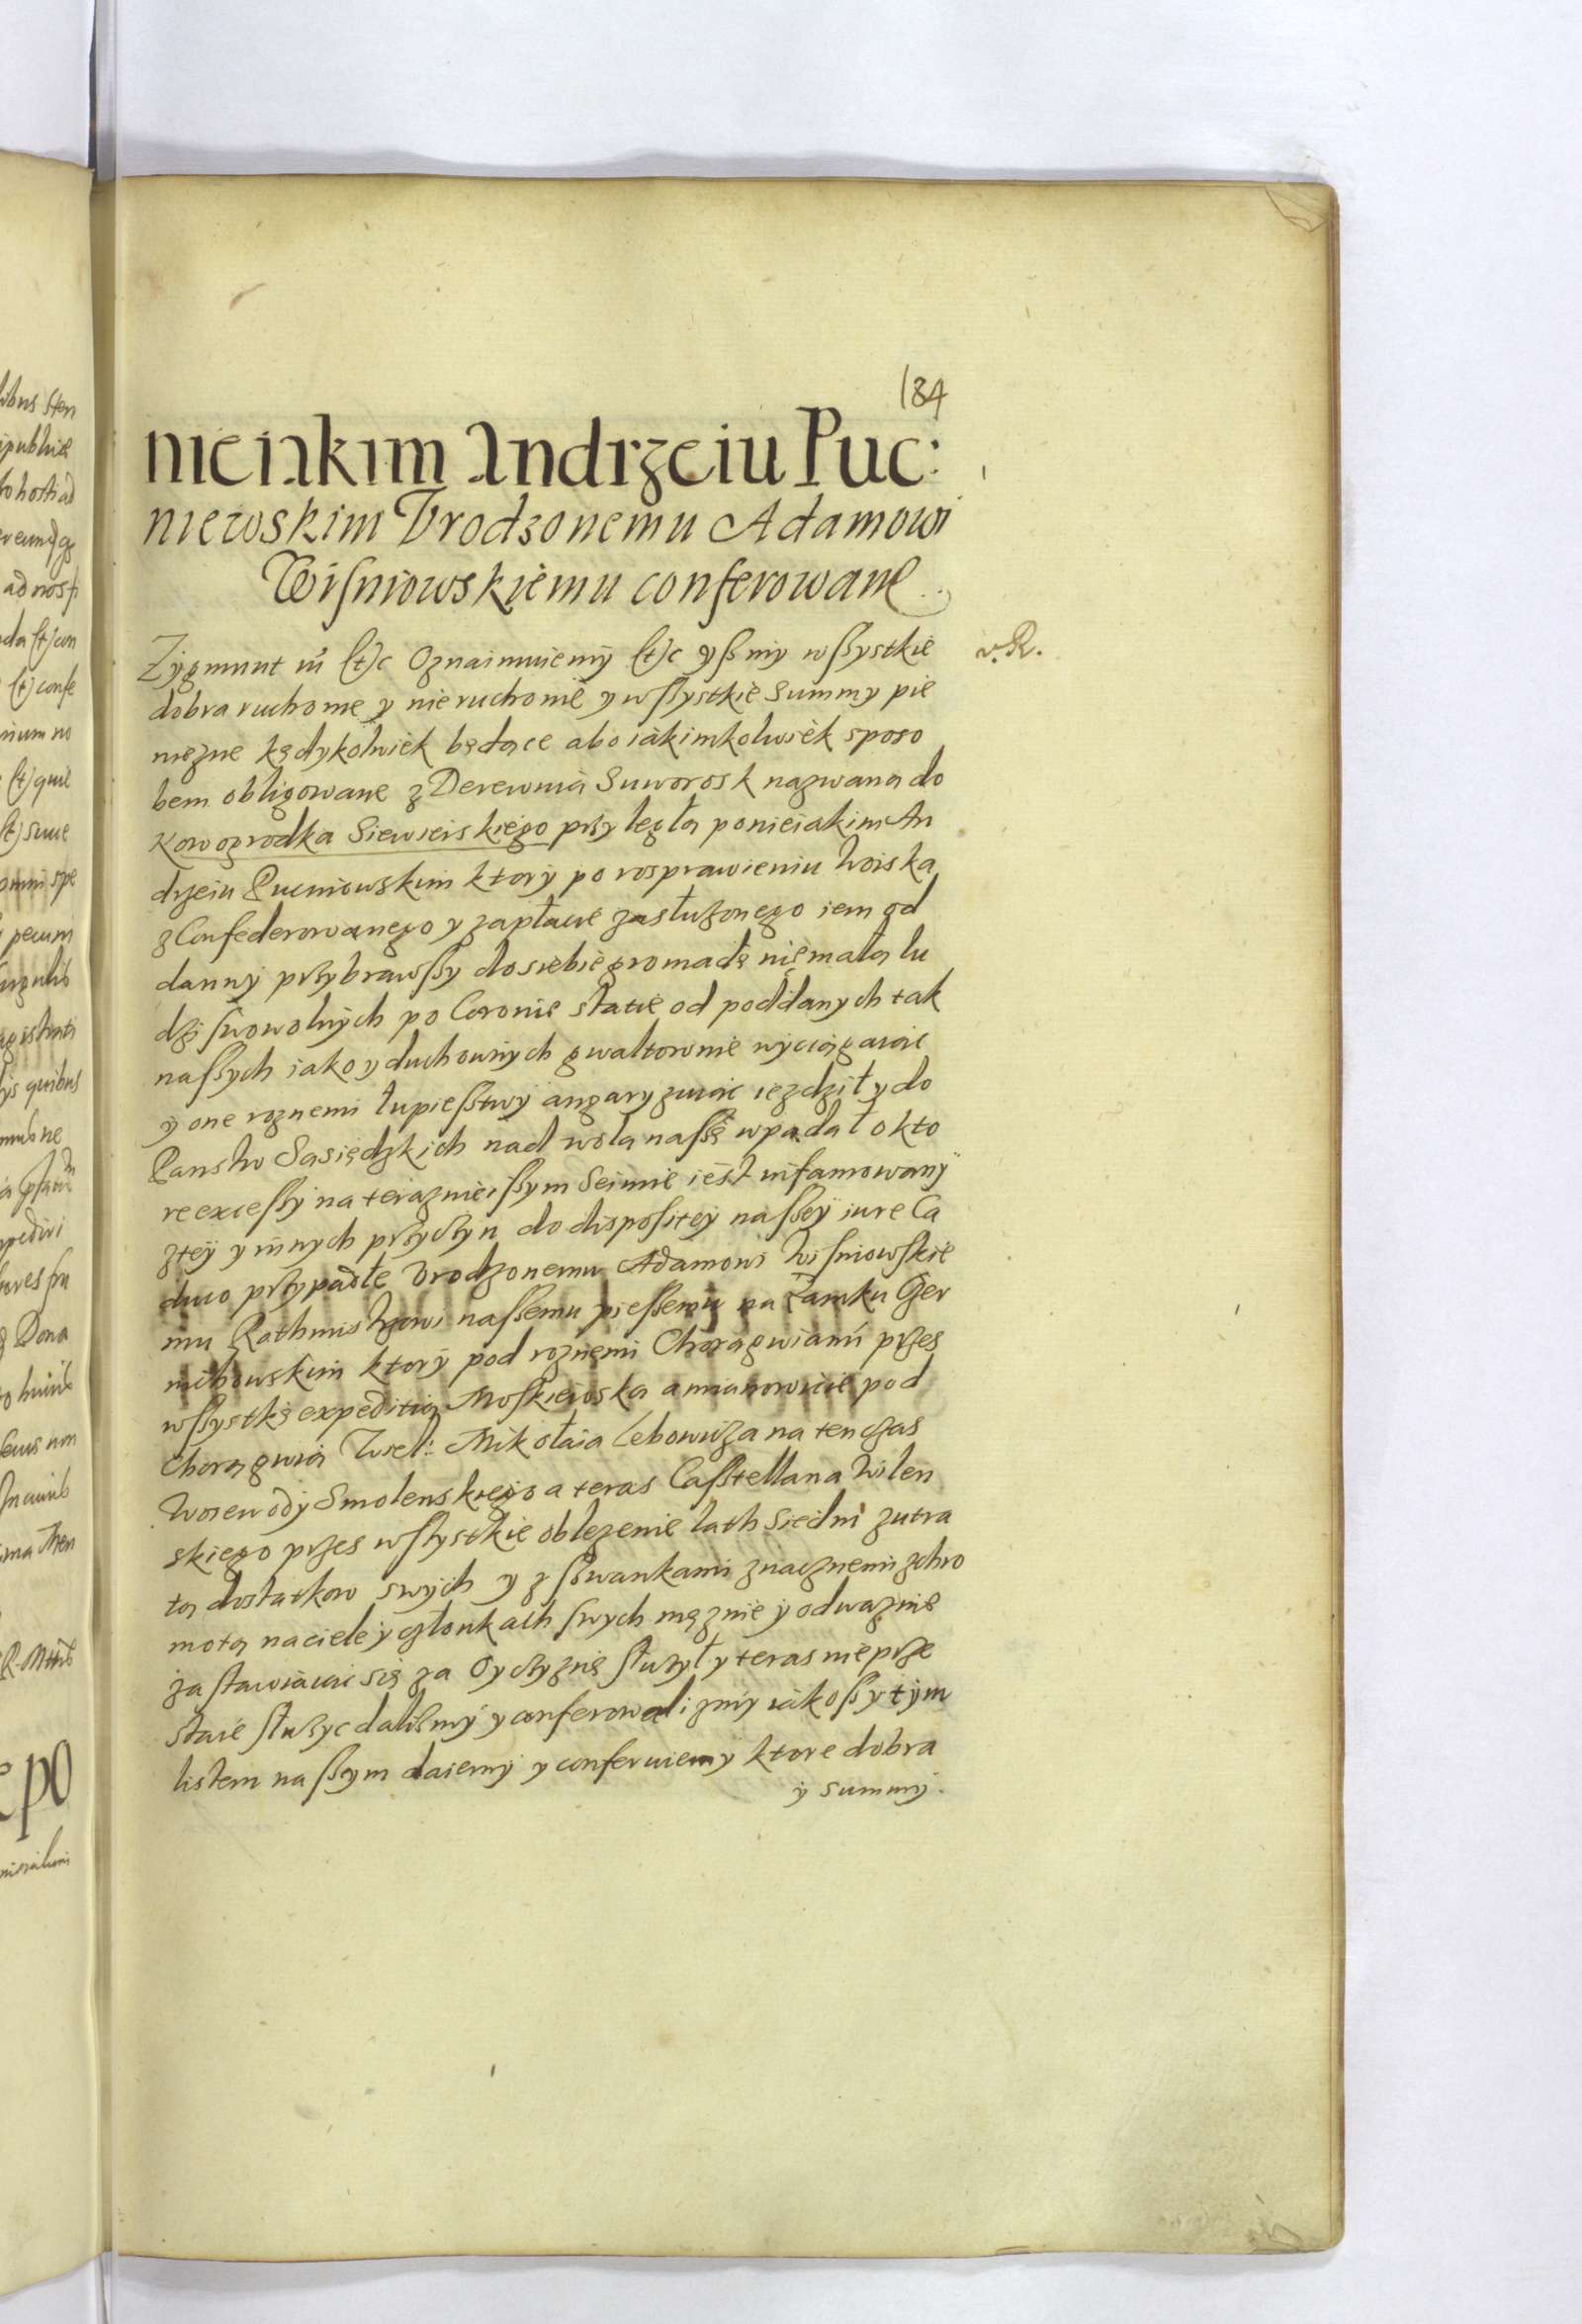 184
nieiakim Andrzeiu Puc:
niewskim Vrodzonemu Adamowi
Wiſniowskiemu conferowane
Zygmunt iii (t)c Oznaimuiemy (t)c yſz my wſzystkie
v. R.
dobra ruchome y nie ruchome y wſzystkie Summy pie
nięzne kędykolwiek będące abo iakimkolwiek sposo
bem obligowane z Derewnią Suworosk nazwaną do
Nowogrodka Siewierskiego przyległą po nieiakim An
drzeiu Pucniowskim ktory po rosprawieniu Woiska
z Confederowanego y zapłacie zasłuzonego iem od
danny przybrawſzy do siebie gromadę niemałą lu
dzi ſwowolnych po Coronie stacie od poddanych tak
naſzych iako y duchownych gwaltownie wyciągaiąc
y one roznemi łupieſtwy angaryzuiąc iezdził y do
Panstw Sasiędzkich nad wolą naſzę wpadał o kto
re exceſſy na terazniejſzym Seimie iest infamowany
z tey y innych przyczyn do dispositey naſzey iure Ca
duco przypadłe Vrodzonemu Adamowi Wiſniowſkie
mu Rathmistrzowi naſzemu pieſzemu na Zamku Ger
ktory pod roznemi Chorągwiami przes
wſzystkę expeditią Moſkiewską a mianowicie pod
Chorągwią Wiel: Mikołaia Lebowicza na ten czas
Woiewody Smolenskiego a teras Caſztellana Wilen
skiego przes wſzystkie oblęzenie lath Siedm z utra
tą dostatkow swych y z ſzwankami znacznemi z chro
motą na ciele y członkach ſwych męznie y odwaznie
zaſtawiaiąc się za Oyczyznę ſłuzył y teras nie prze
staie ſłuzyc dalismy y conferowalismy iakoſz y tym
listem naſzym daiemy y conferuiemy ktore dobra
y summy.